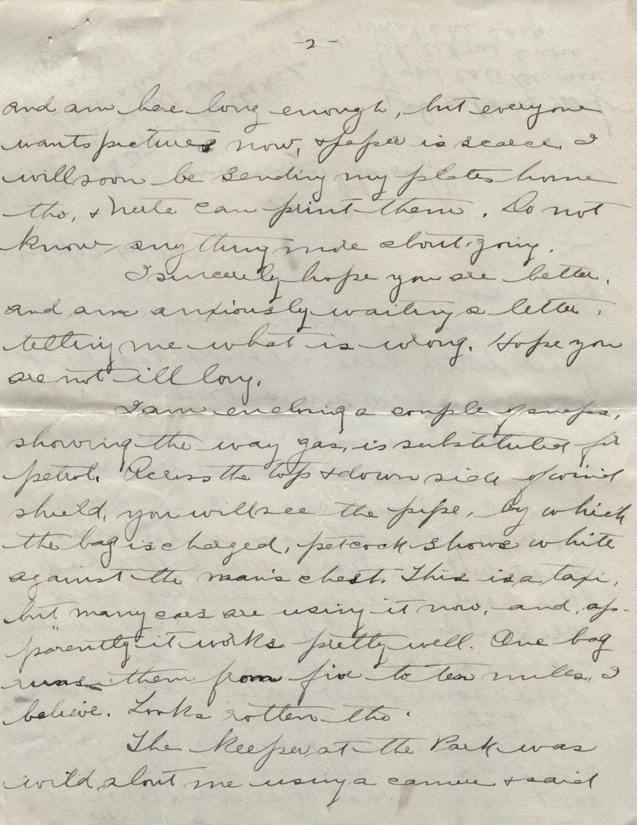 -2-
and am here long enough, but everyone
wants pictures now, & paper is scarce. I
will soon be sending my plates home
tho, & can print them. Do not
know anything more about going.
I sincerely hope you are better,
and am anxiously waiting a letter,
telling me what is wrong. Hope you
are not ill long.
I am enclosing a couple of snaps,
showing the way gas, is substituted for
petrol. Across the top & down side of wind
shield, you will see the pipe, by which
the bag is charged, petcock shows white
against the man's chest. This is a taxi,
but many cars are using it now, and, ap-
parently it works pretty well. One bag
runs them from five to ten miles, I
believe. Looks rotten tho.
The keeper at the Park was
wild about me using a camera & said